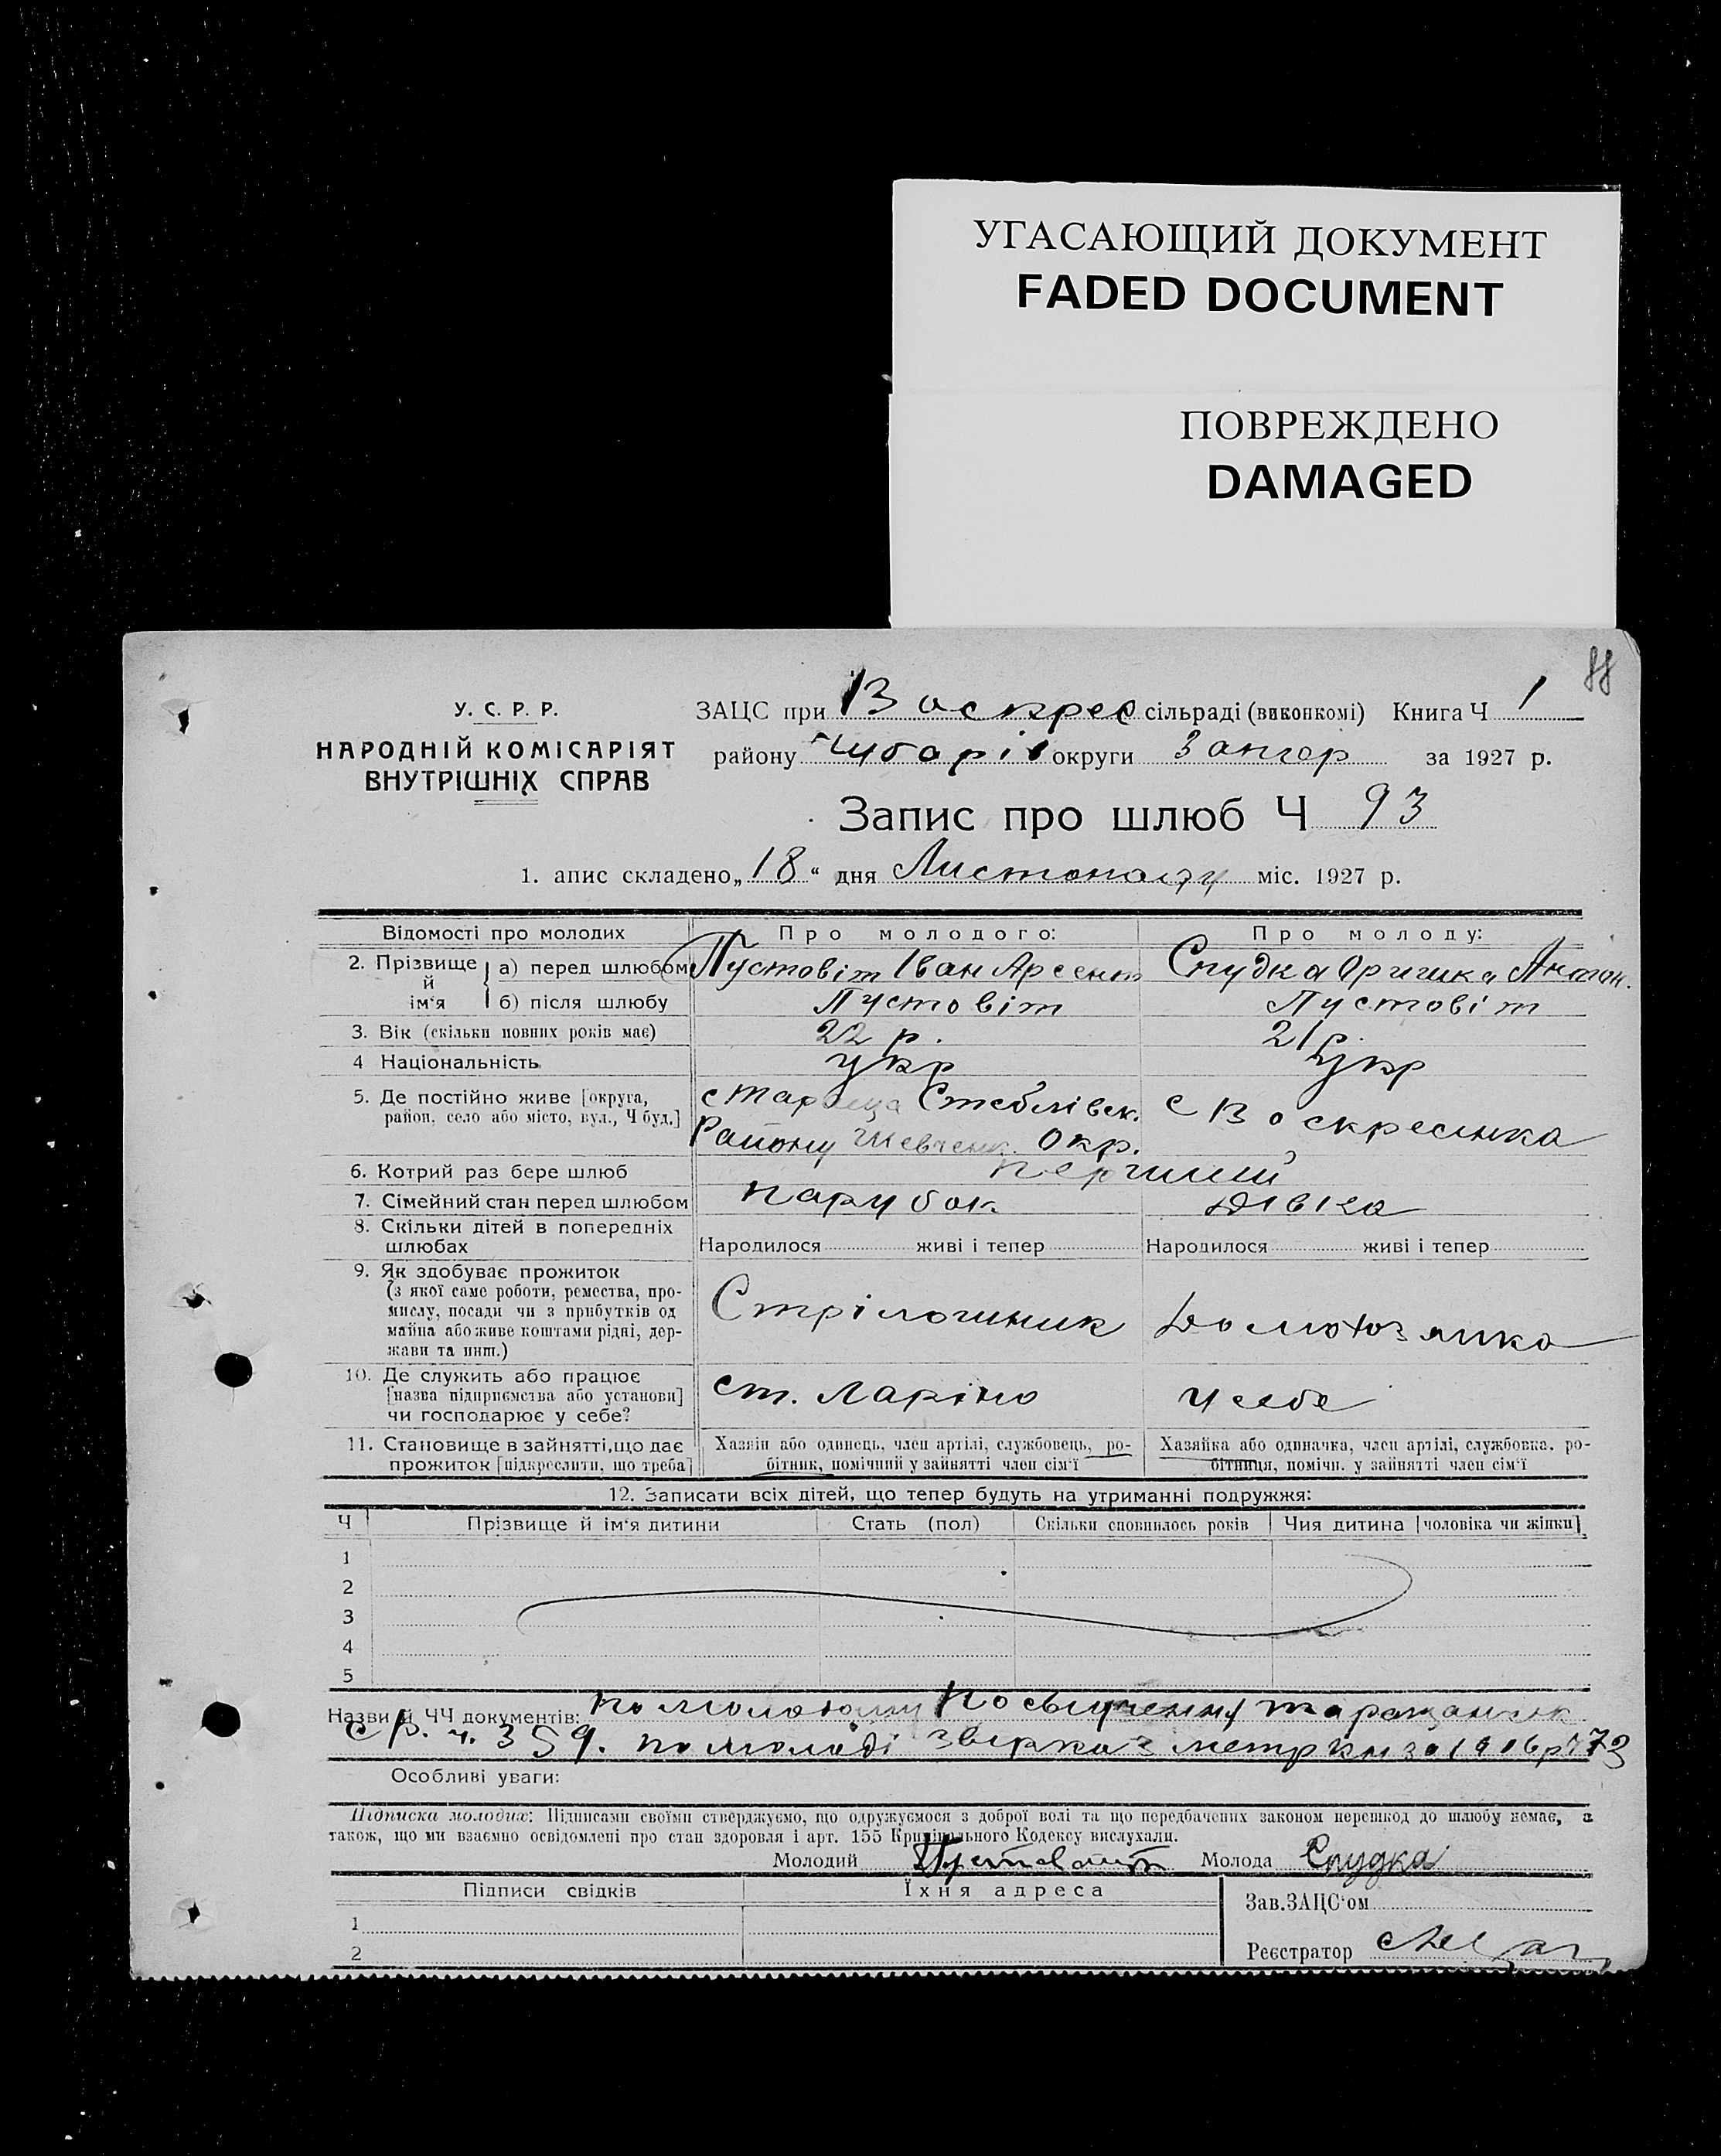 УГАСАЮЩИЙ ДОКУМЕНТ
FADED DOCUMENT
ПОВРЕЖДЕНО
DAMAGED
88
У. С. Р. Р.
НАРОДНІЙ КОМІСАРІЯТ
ВНУТРІШНІХ СПРАВ
ЗАЦС при Воскрес сільраді (виконкомі) Книга Ч 1
району Чубарів округи Запор за 1927 р.
Запис про шлюб Ч 93
1. апис складено „18“ дня Листопаду міс. 1927 р.
Відомості про молодих
Про молодого:
Про молоду:
2. Прізвище й ім‘я
а) перед шлюбом Пустовіт Іван Арсент Спудка Оришка Антон.
б) після шлюбу Пустовіт Пустовіт
3. Вік (скільки повних років має) 22 р. 21 р.
4 Національність укр укр
5. Де постійно живе [округа,
район, село або місто, вул., Ч буд.]
Стеблівск.
Району Шевченк. Окр.
с Воскресенка
6. Котрий раз бере шлюб перший
7. Сімейний стан перед шлюбом парубок дівка
8. Скільки дітей в попередніх
шлюбах
Народилося живі і тепер Народилося живі і тепер
9. Як здобуває прожиток
(з якої саме роботи, ремества, про-
мислу, посади чи з прибутків од
майна або живе коштами рідні, дер-
жави та инш.)
Стрілочник
10. Де служить або працює
[назва підприємства або установи]
чи господарює у себе?
ст. Ларіно
у себе
11. Становище в зайнятті, що дає
прожиток [підкреслити, що треба]
Хазяїн або одинець, член артілі, службовець, ро-
бітник, помічний у зайнятті член сім‘ї
Хазяйка або одиначка, член артілі, службовка. ро-
бітниця, помічн. у зайнятті член сім‘ї
12. Записати всіх дітей, що тепер будуть на утриманні подружжя:
Ч Прізвище й ім‘я дитини Стать (пол) Скільки сповнилось років Чия дитина [чоловіка чи жінки]
1
2
3
4
5
Назви й ЧЧ документів: по молодому посвідченню
с р. ч. 359. по молоді звірка з метр кн за 1906 р ч 73
Особливі уваги:
Підписка молодих: Підписами своїми стверджуємо, що одружуємося з доброї волі та що передбачених законом перешкод до шлюбу немає, а
також, що ми взаємно освідомлені про стан здоровля і арт. 155 Кримінального Кодексу вислухали.
Молодий Молода Спудка
Підписи свідків Їхня адреса
Зав. ЗАЦС‘ом
1
2
Реєстратор